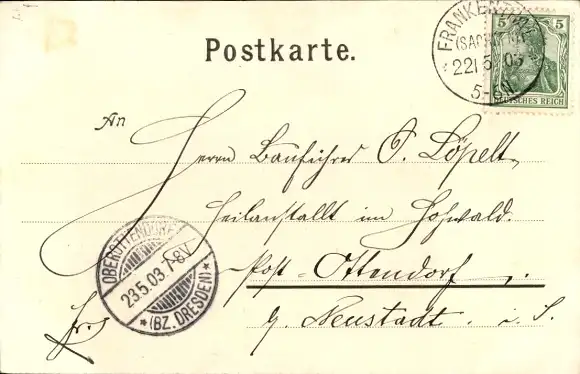 Postkarte.
FRANKENTHAL
(SACHSEN)
22/5 03
5-6N.
5 5
DEUTSCHES REICH
An
Herrn Bauführer P. Löpelt,
Heilanstallt im Hohwald.
Post-Ottendorf,
Fr. b. Neustadt. i. S.
OBEROTTENDORF
23.5.03.7-8V.
* (BZ. DRESDEN) *